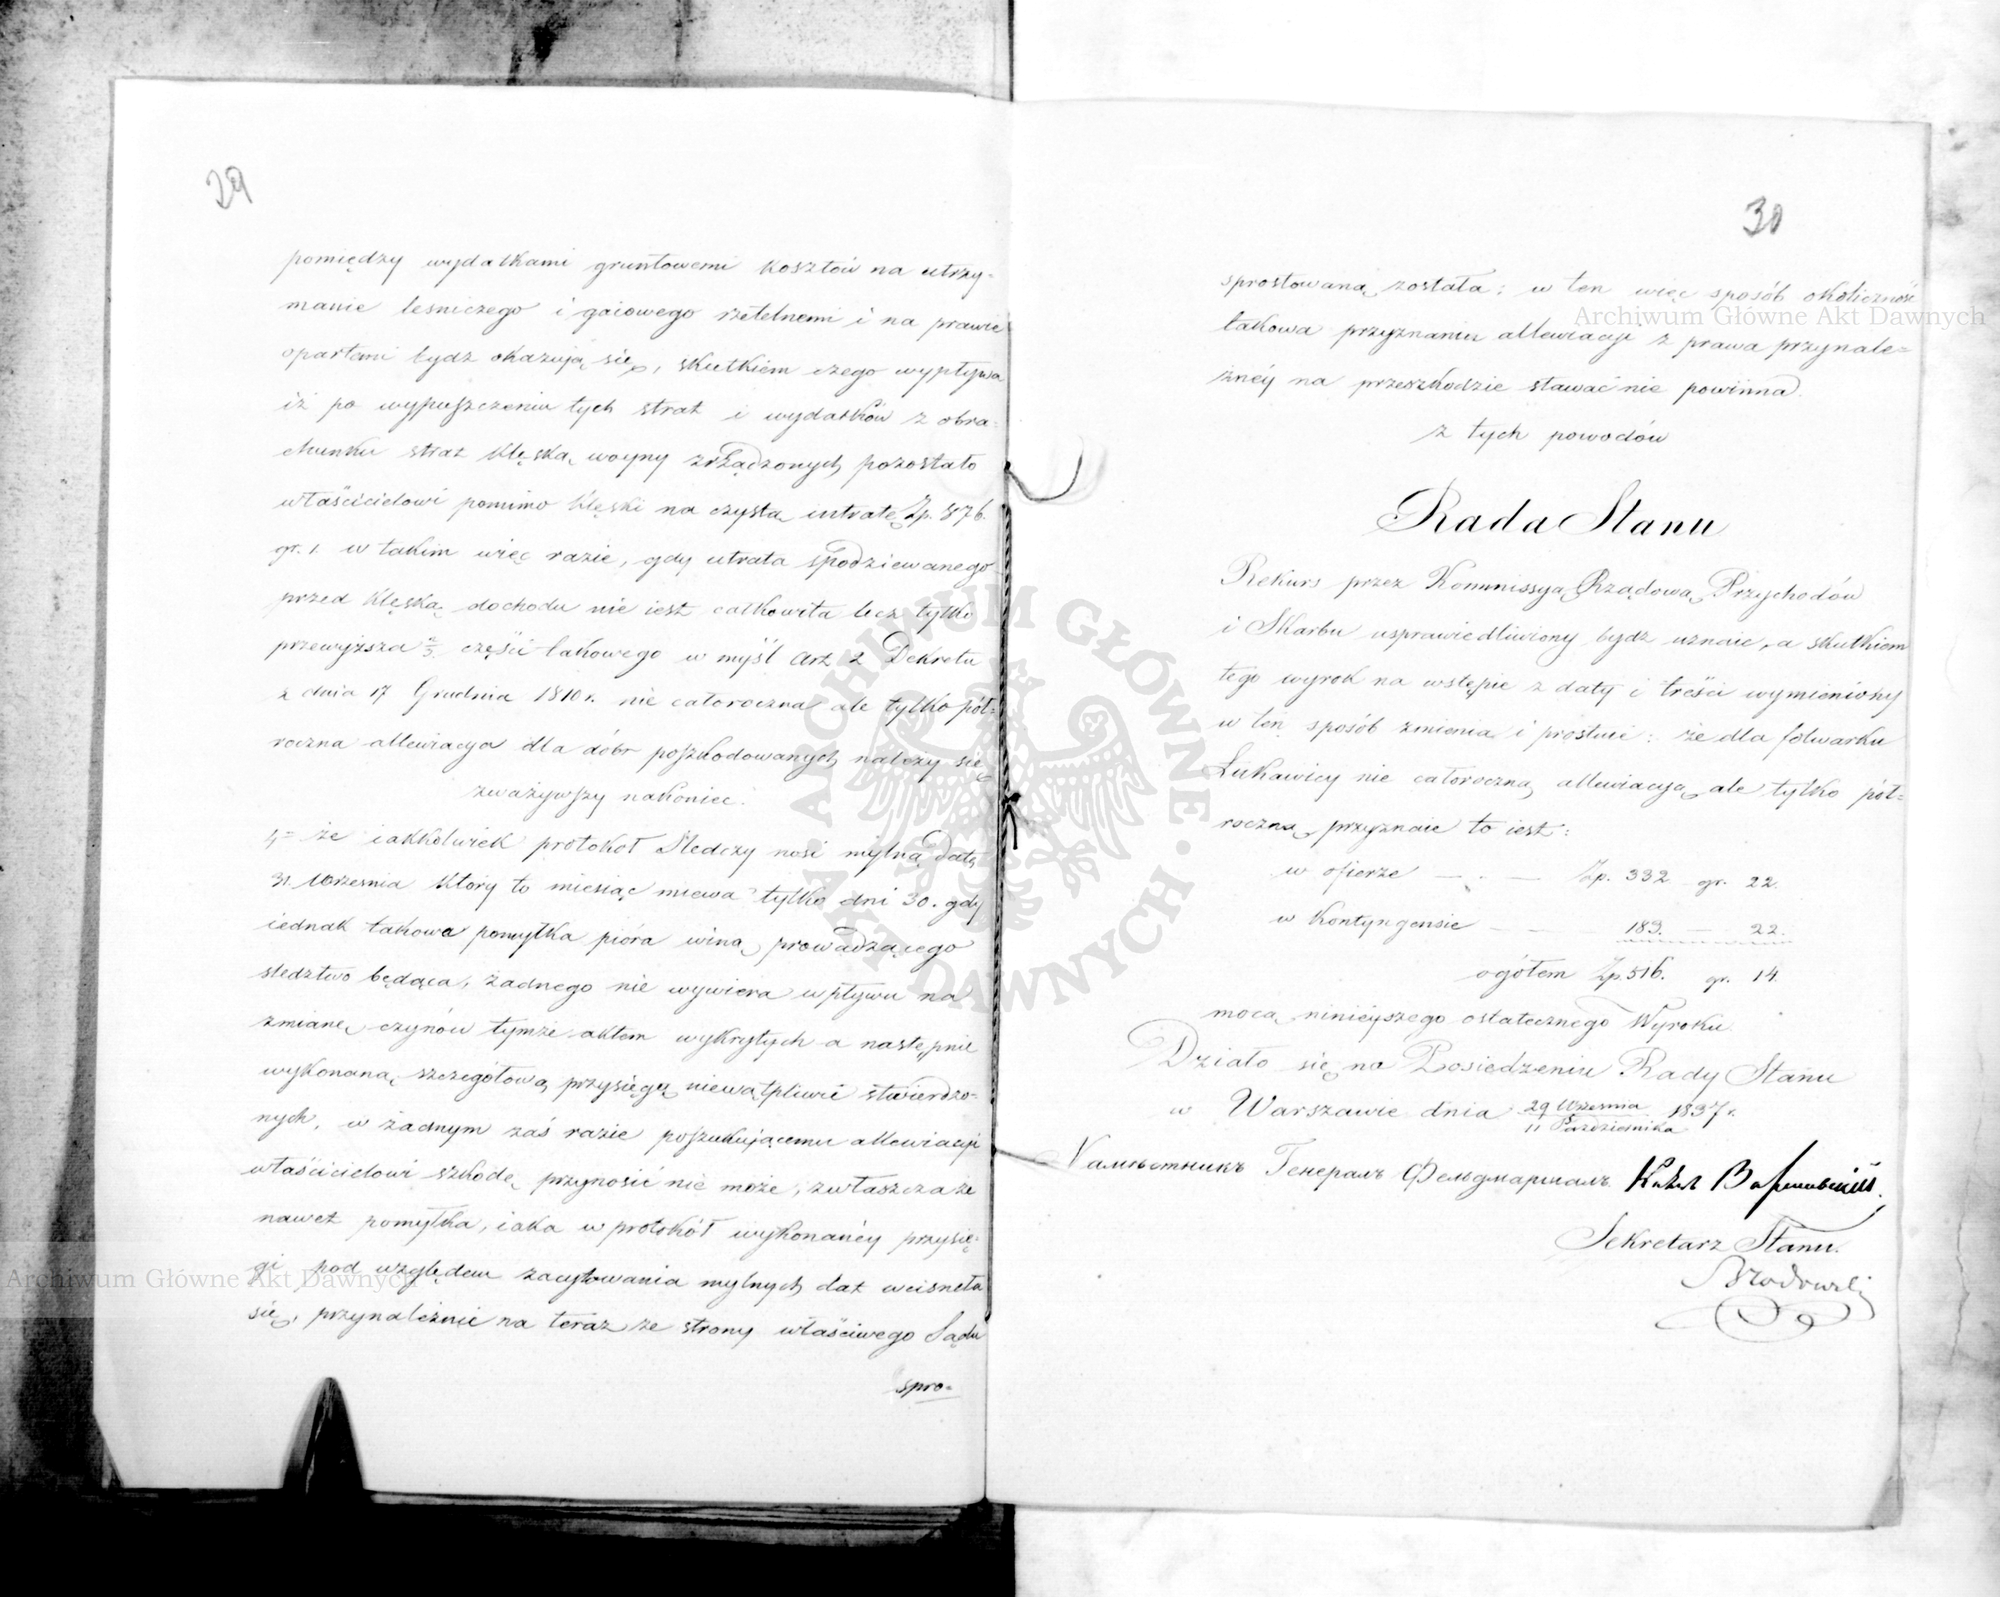 29
pomiędzy wydatkami gruntowemi kosztów na utrzy-
manie leśniczego i gaiowego rzetelnemi i na prawie
opartemi bydź okazują się, skutkiem czego wypływa
iż po wypuszczeniu tych strat i wydatków z obra-
chunku strat klęską woyny zrządzonych pozostało
właścicielowi pomimo klęski na czystą intratę Zp. 876.
gr. 1. w takim więc razie, gdy utrata spodziewanego
przed klęską dochodu nie iest całkowita lecz tylko
przewyższa 2/3 części takowego w myśl Art. 2 Dekretu
z dnia 17 Grudnia 1810 r. nie całoroczna ale tylko pół-
roczna allewiacya dla dóbr poszkodowanych należy się
zważywszy nakoniec.
4= że iakkolwiek protokół Śledczy nosi mylną datę
31. Września który to miesiąc miewa tylko dni 30. gdy
iednak takowa pomyłka pióra winą prowadzącego
śledztwo będąca, żadnego nie wywiera wpływu na
zmianę czynów tymże aktem wykrytych a następnie
wykonaną szczegółową przysięgą niewątpliwie stwierdzo-
nych, w żadnym zaś razie poszukującemu allewiacyi
właścicielowi szkodę przynosić nie może, zwłaszcza że
nawet pomyłka, iaka w protokół wykonanéy przysię-
gi pod względem zacytowania mylnych dat wcisnęła
się, przynależnie na teraz ze strony właściwego Sądu
spro-
30
sprostowaną została; w ten więc sposób okoliczność
takowa przyznaniu allewiacyi z prawa przynale-
żnéy na przeszkodzie stawać nie powinna.
z tych powodów
Rada Stanu
Rekurs przez Kommissyą Rządową Przychodów
i Skarbu usprawiedliwiony bydź uznaie, a skutkiem
tego wyrok na wstępie z daty i treści wymieniony
w ten sposób zmienia i prostuie: że dla folwarku
Łukawicy nie całoroczną allewiacyą ale tylko pół-
roczną przyznaie to iest:
w ofierze — . — Zp. 332 gr. 22.
w kontyngensie — — — 183. — 22.
ogółem Zp. 516. gr. 14.
mocą ninieyszego ostatecznego Wyroku.
Działo się na Posiedzeniu Rady Stanu
w Warszawie dnia 29 Września / 11 Października 1837 r.
Намѣстникъ Генералъ Фельдмаршалъ Князь Варшавскій.
Sekretarz Stanu.
Archiwum Główne Akt Dawnych
Archiwum Główne Akt Dawnych
ARCHIWUM GŁÓWNE · AKT DAWNYCH ·